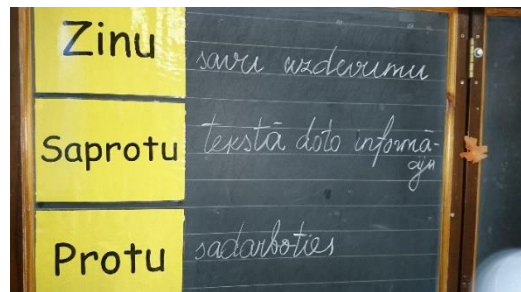 Zinu savu uzdevumu
Saprotu tekstā doto informā-
ciju
Protu sadarboties